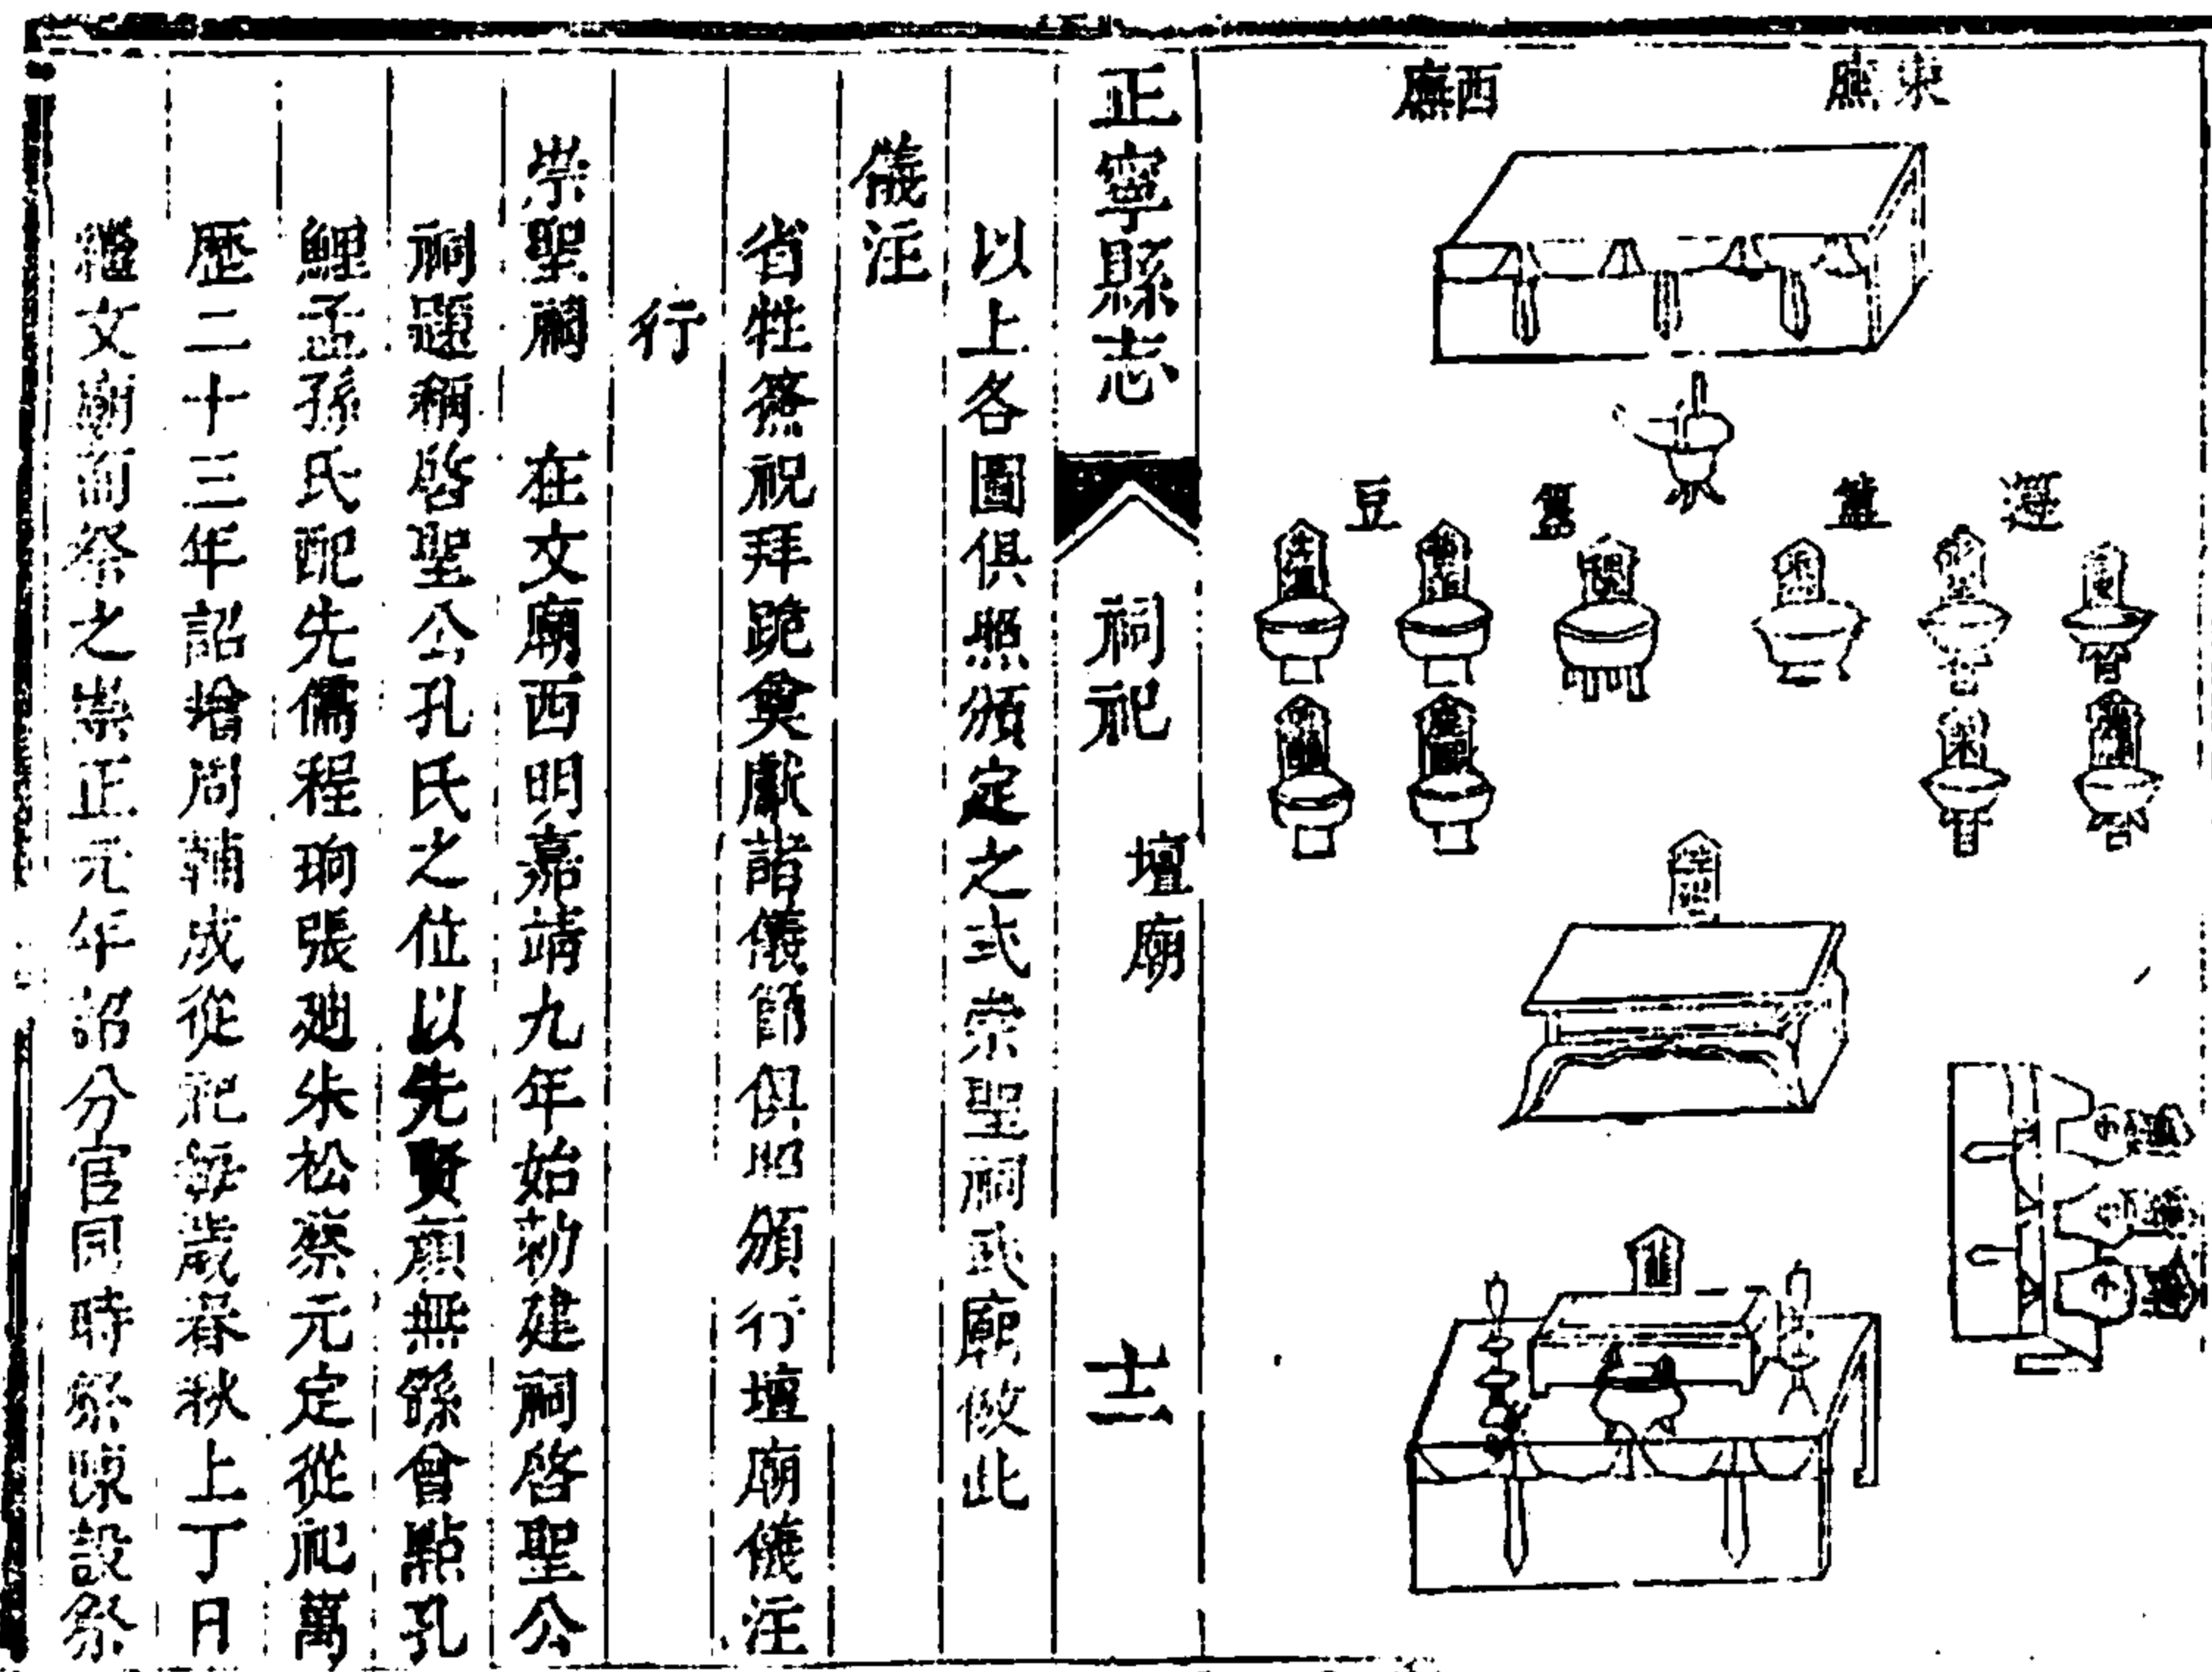 東廡
西廡
籩
簠
簋
豆
正寧縣志
祠祀
壇廟
十二
以上各圖俱照頒定之式崇聖祠武廟倣此
儀注
省牲簽祝拜跪奠獻諸儀節俱照頒行壇廟儀注
行
崇聖祠 在文廟西明嘉靖九年始勅建祠啓聖公
祠題稱啓聖公孔氏之位以先賢顏無繇曾點孔
鯉孟孫氏配先儒程珦張廸朱松蔡元定從祀萬
歷二十三年詔增周輔成從祀每歲春秋上丁日
繼文廟而祭之崇正元年詔分官同時祭陳設祭